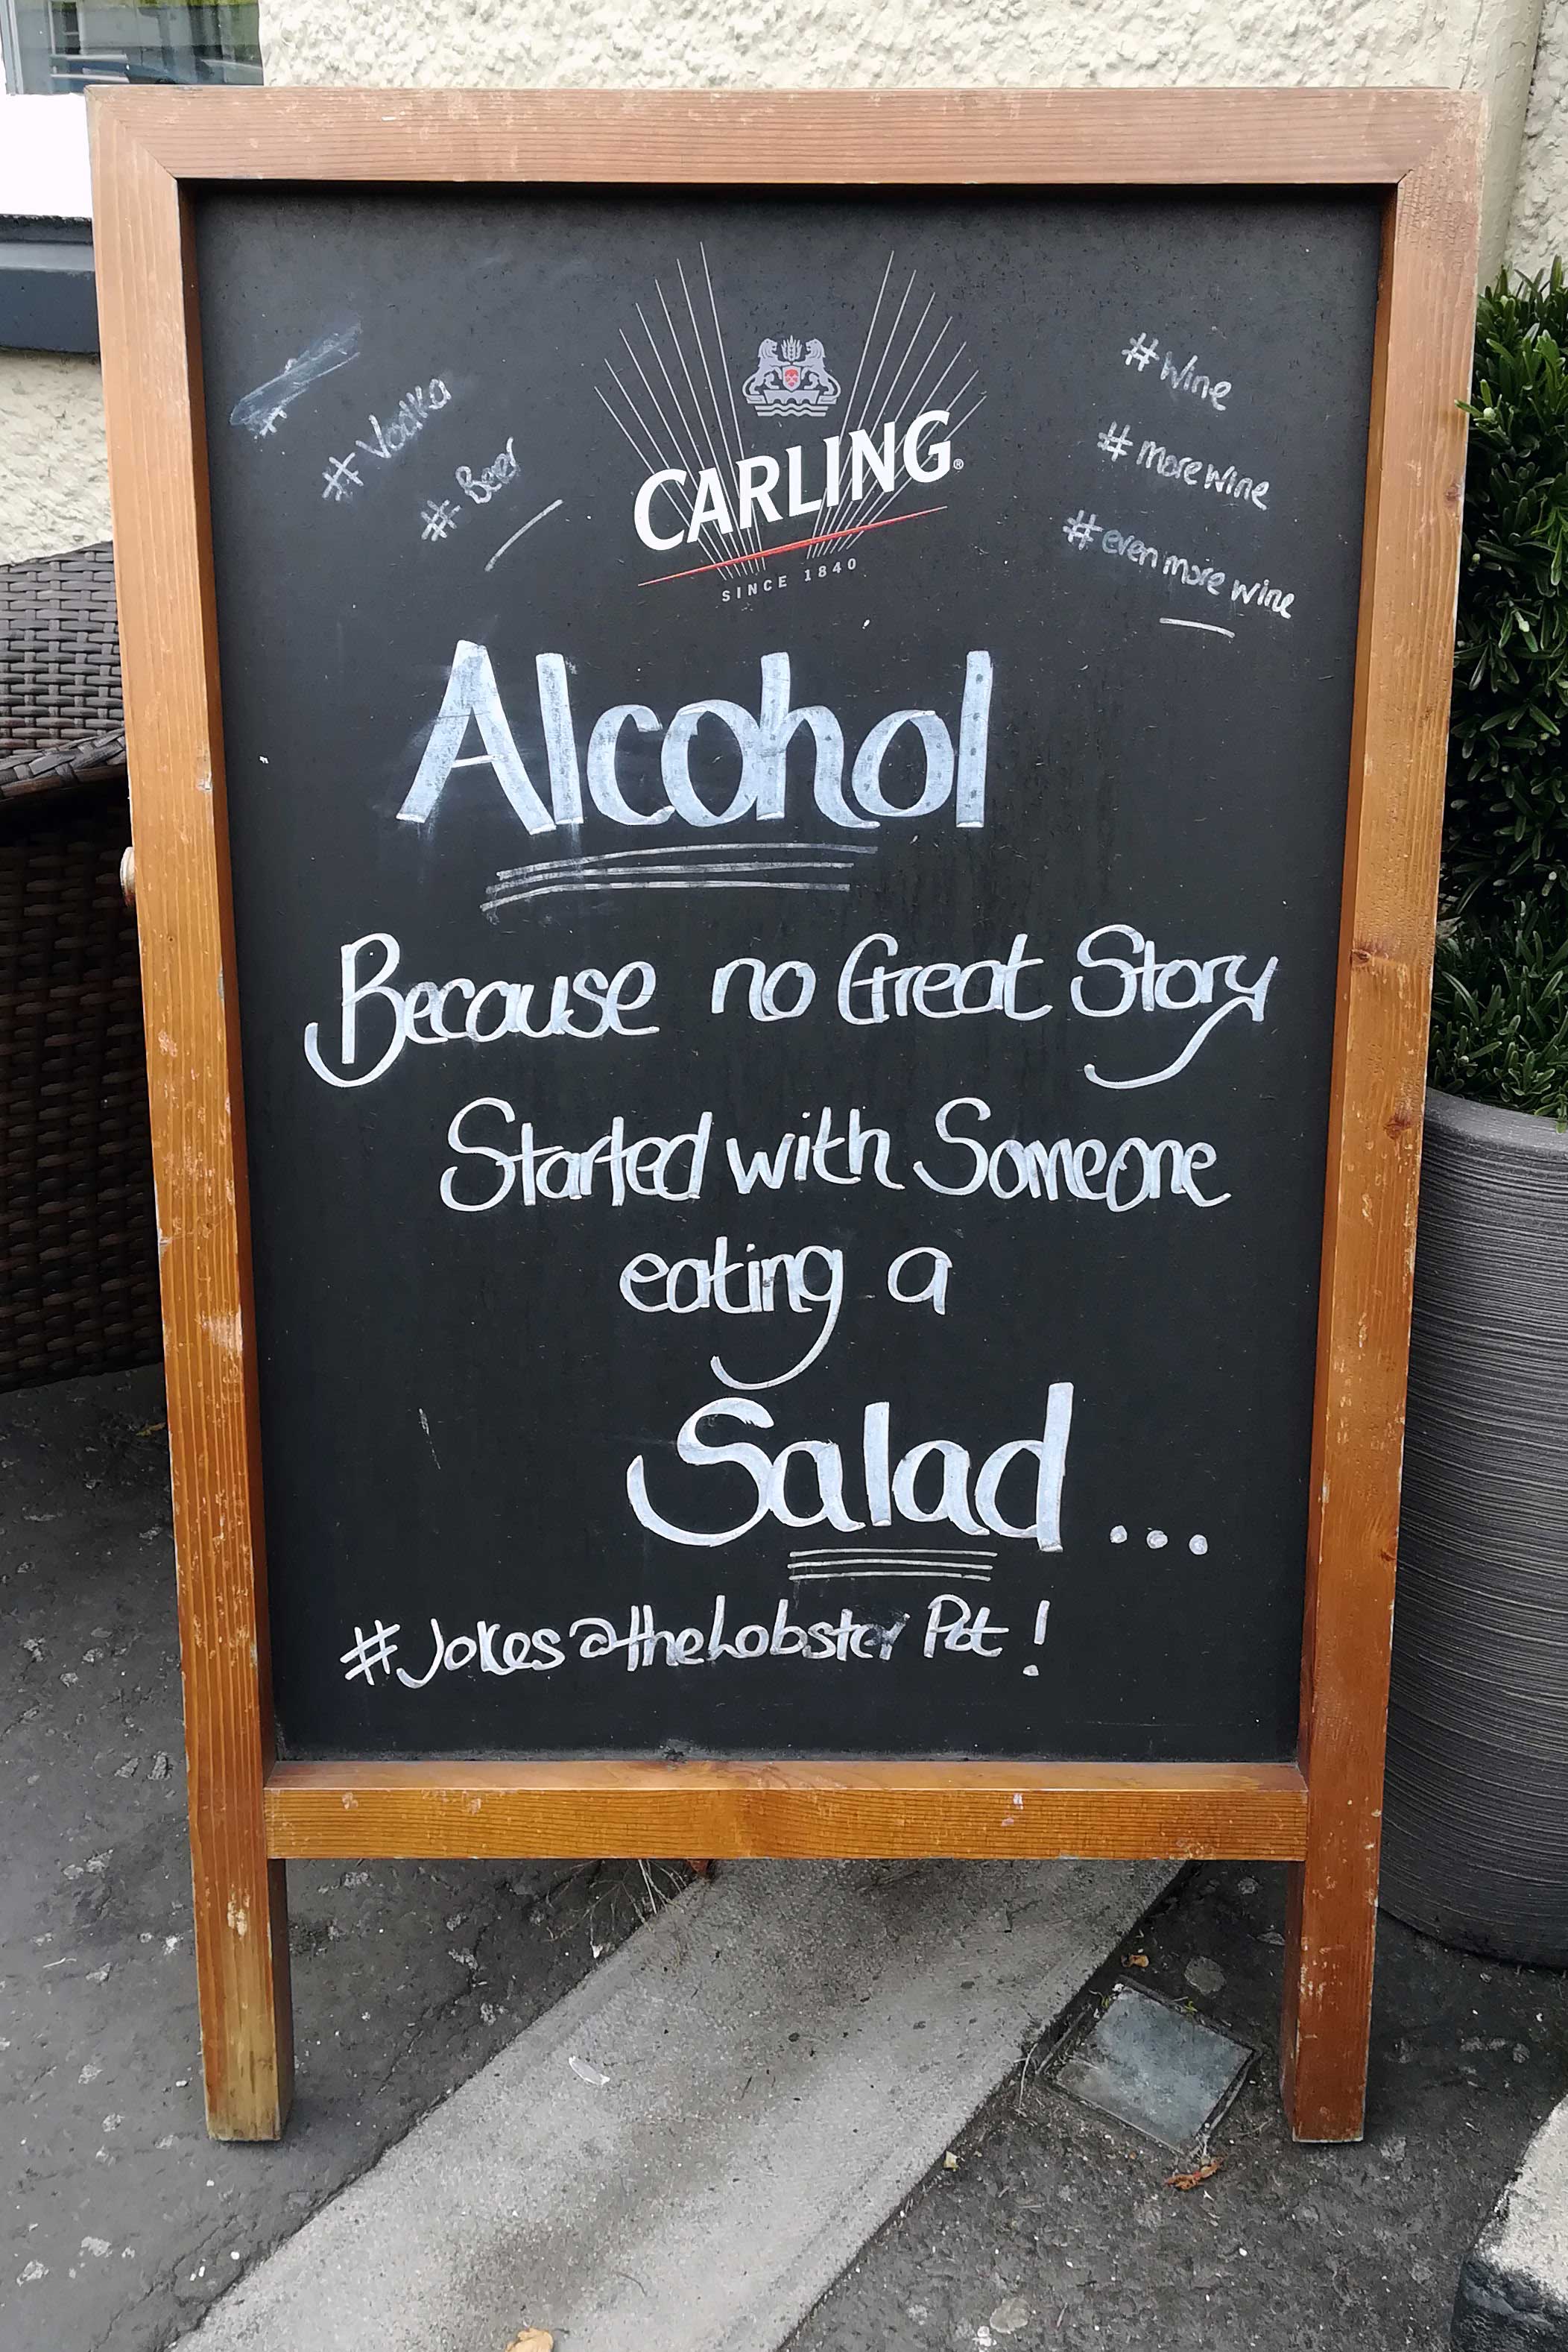 # Vodka
# Beer
# wine
# more wine
# even more wine
CARLING®
SINCE 1840
Alcohol
Because no Great Story
Started with Someone
eating a
Salad ...
#Jokes@theLobster Pot!